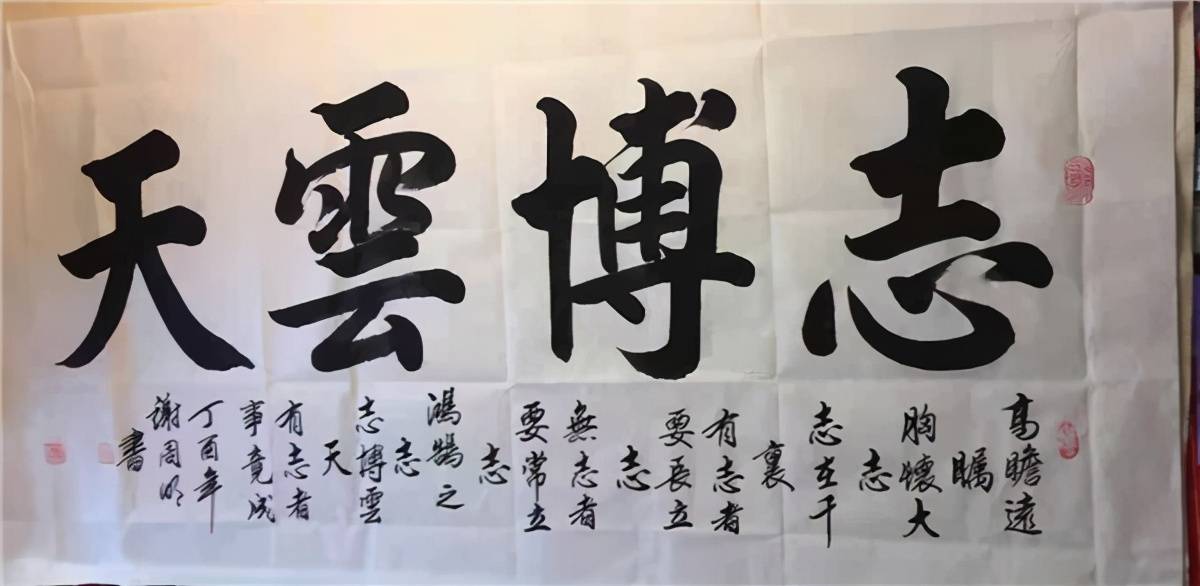 志博雲天
高瞻遠
矚
胸懷大
志
志在千
裏
有志者
要長立
志
無志者
要常立
志
鴻鵠之
志
志博雲
天
有志者
事竟成
丁酉年
謝周明
書